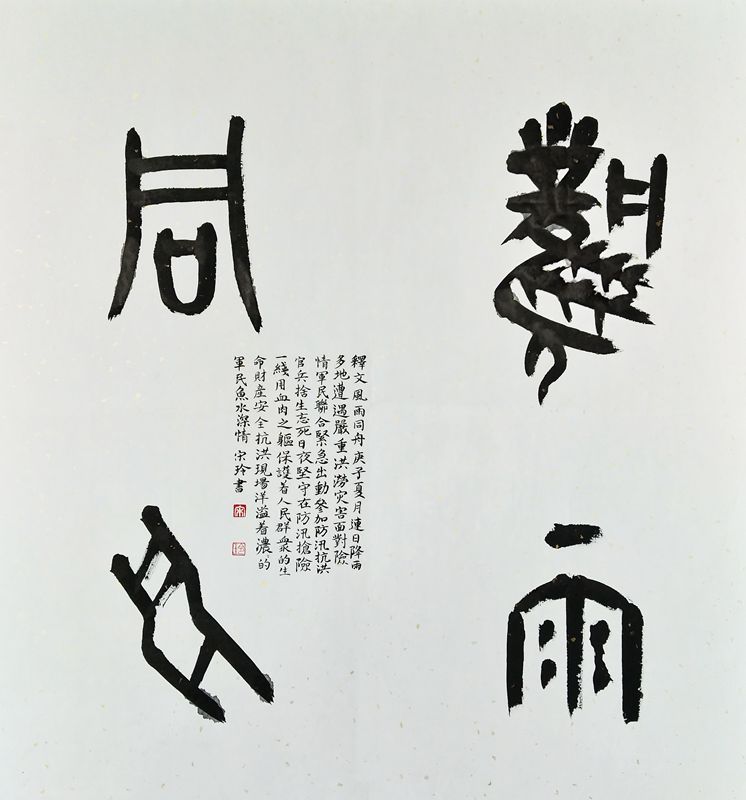 風雨
同舟
釋文風雨同舟庚子夏月連日降雨
多地遭遇嚴重洪澇灾害面對險
情軍民聯合緊急出動參加防汛抗洪
官兵捨生忘死日夜堅守在防汛搶險
一綫用血肉之軀保護着人民群眾的生
命財産安全抗洪現場洋溢着濃〻的
軍民魚水深情 宋玲書
宋
玲